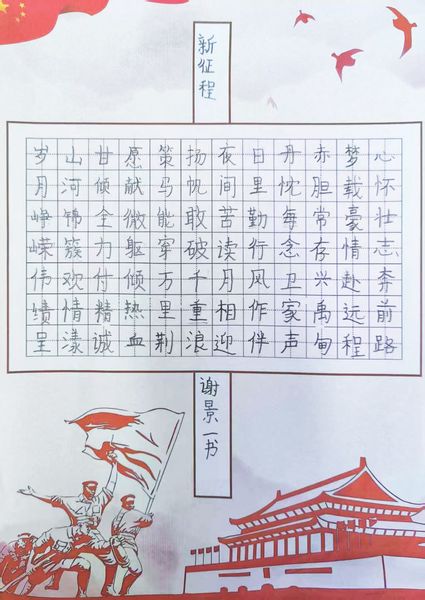 新征程
心怀壮志奔前路
梦载豪情赴远程
赤胆常存兴禹甸
丹忱每念卫家声
日里勤行风作伴
夜间苦读月相迎
扬帆敢破千重浪
策马能穿万里荆
愿献微躯倾热血
甘倾全力付精诚
山河锦簇欢情漾
岁月峥嵘伟绩呈
谢景一书